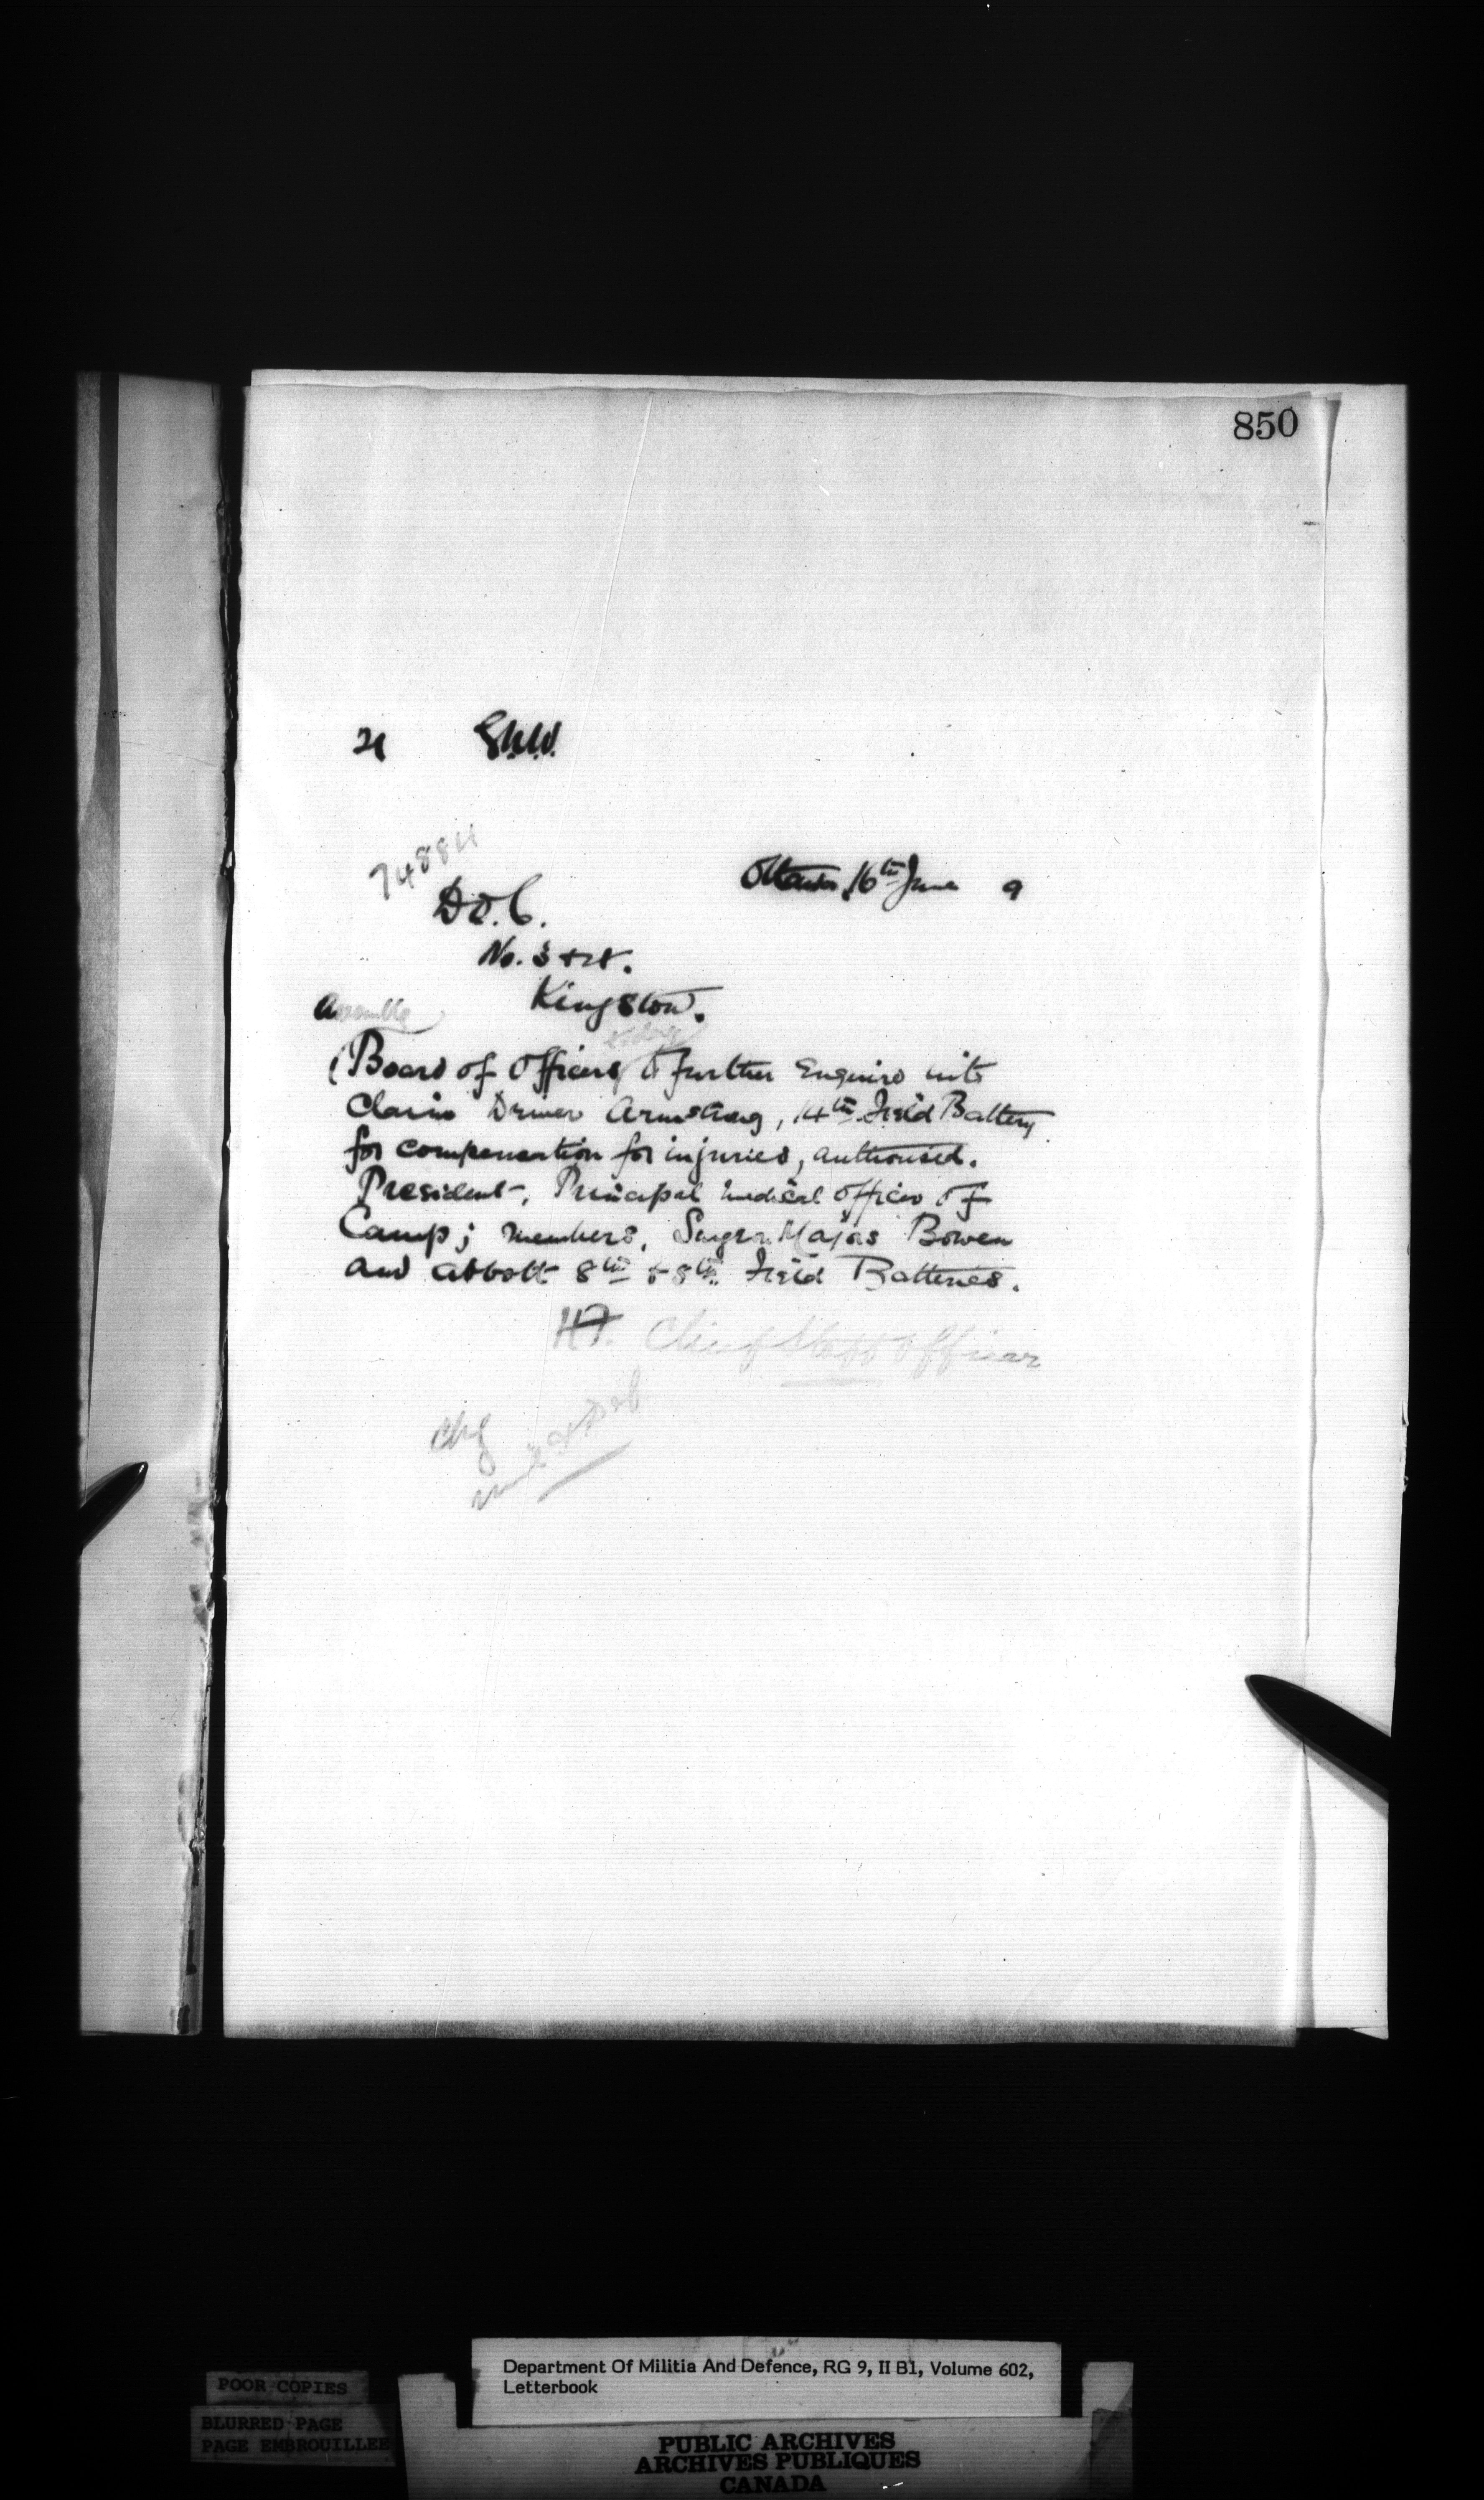 850
21 G.W.W.
74884
Ottawa 16th June 9
D.O.C.
No. 3 & 4.
Kingston.
Assemble
today
(Board of Officers to further enquire into
Claim Driver Armstrong, 14th Field Battery
for compensation for injuries, authorised.
President, Principal Medical Officer of
Camp; members, Surgeon Majors Bowen
and Abbott 8th & 5th Field Batteries.
Chief Staff Officer
Chg
Department Of Militia And Defence, RG 9, II B1, Volume 602,
Letterbook
POOR COPIES
BLURRED PAGE
PAGE EMBROUILLEE
PUBLIC ARCHIVES
ARCHIVES PUBLIQUES
CANADA